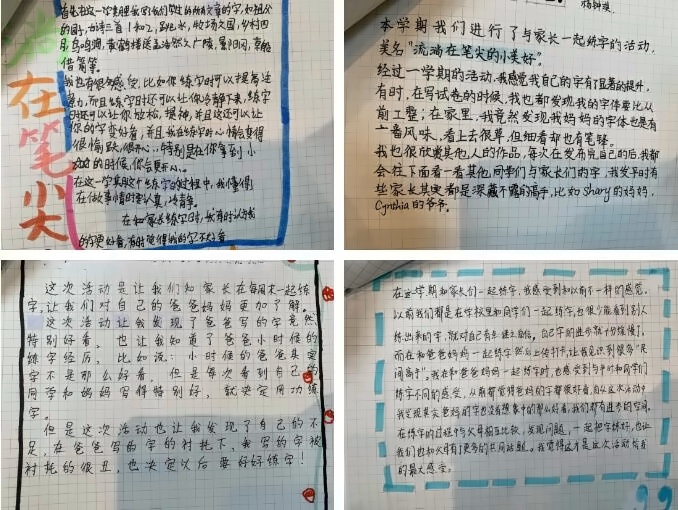 在笔尖
首先在这一学期里我
的园子,古诗三首1和2,
月,鸟鸣涧,黄鹤楼送孟浩然之广陵,
借箭等。
我也有很多感受,比如你练字时可以提高注
意力,而且练字时还可以让你冷静下来,练字
时还可以让你放松,提神,并且这还可以让
你的字变好看,并且我在练字时心情会变得
很愉跃,很开心,特别是在你等到小
的时候,你会更开心。
在这一学期这个练字的过程中,我懂得
在做事情时要认真,冷静。
在和家长练字时,我有时认为我
的字更好看,有时觉得我的字不好看
杨钟淏
本学期我们进行了与家长一起练字的活动,
美名“流淌在笔尖的小美好”。
经过一学期的活动,我感觉我自己的字有了显著的提升,
有时,在写试卷的时候,我也都发现我的字体要比从
前工整;在家里,我竟然发现我妈妈的字体也是有
一番风味、看上去很草,但细看却也有笔锋。
我也很欣赏其他人的作品,每次在发布完自己的后,我都
会往下面看一看其他同学们与家长们的字,我发下时有
些家长其实都是深藏不露的高手,比如Shary的妈妈,
Cynthia的爷爷。
这次活动是让我们和家长在每周末一起练
字,让我们对自己的爸爸妈妈更加了解。
这次活动让我发现了爸爸写的字竟然
特别好看,也让我知道了爸爸小时候的
练字经历,比如说:小时候的爸爸其实
字不是那么好看,但是每次看到自己的
同学和妈妈写得特别好,就决定用功练
字。
但是这次活动也让我发现了自己的不
足,在爸爸写的字的衬托下,我写的字被
衬托的很丑,也决定以后要好好练字!
在这学期和家长们一起练字,我感受到和以前不一样的感觉。
以前我们都是在学校里和同学们一起练字,也很少能看到别人
练出来的字,就对自己有点谜之自信。自己字的进步就十分缓慢了。
而在和爸爸妈妈一起练字然后上传打卡,让我见识到很多“民
间高手”。我在和爸爸妈妈一起练字时,也感受到与平时和同学们
练字不同的感受,从前都觉得爸妈的字都很好看,自从这次活动中
我发现其实爸妈的字也没有想象中的那么好看,我们都有进步的空间。
在练字的过程中与父母相互比较,发现问题,一起把字练好,也让
我们也和父母有了更多的共同话题。我觉得这才是这次活动给我
的最大感受。